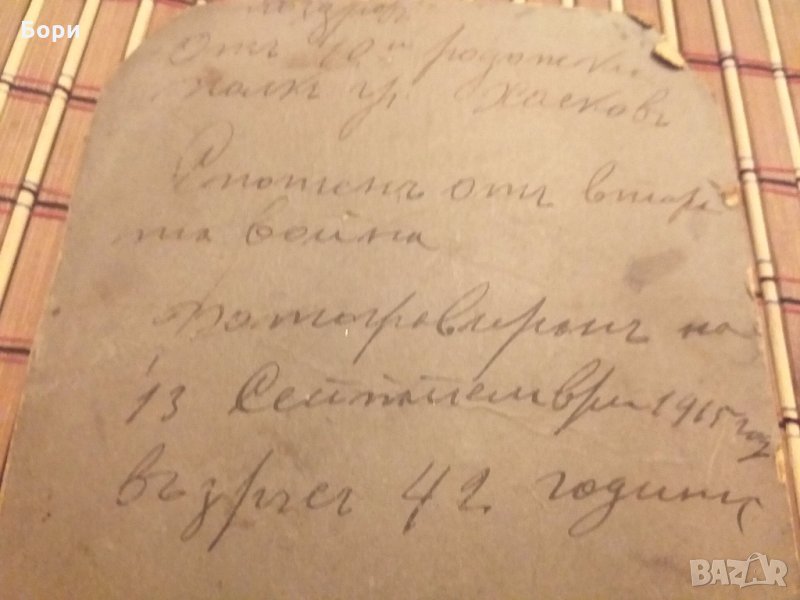 Бори
Отъ 10и родопски
полкъ гр. Хасковъ
Споменъ отъ втора
та война
Фотографиранъ на
13 Септември 1915 год
възрест 42 години
BAZAR